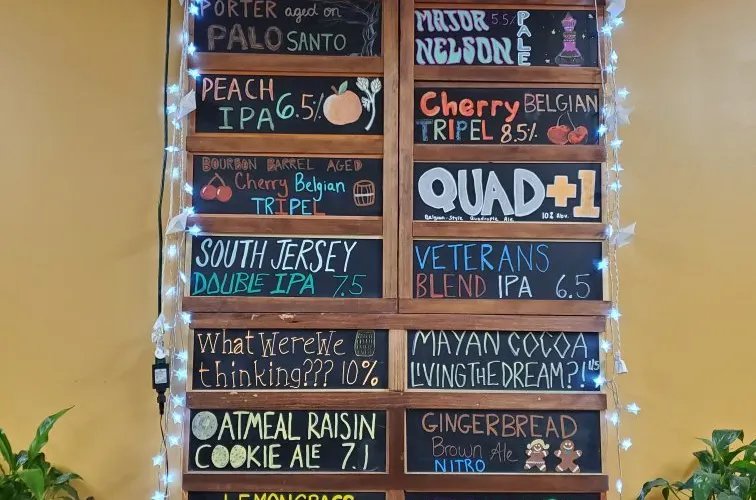 PORTER aged on
PALO SANTO
PEACH
IPA 6.5%
BOURBON BARREL AGED
Cherry Belgian
TRIPEL
SOUTH JERSEY
DOUBLE IPA 7.5
What WereWe
thinking??? 10%
OATMEAL RAISIN
COOKIE ALE 7.1
LEMONGRASS
MAJOR 5.5%
NELSON
PALE
Cherry BELGIAN
TRIPEL 8.5%
QUAD+1
Belgian-Style Quadruple Ale 10% Abv.
VETERANS
BLEND IPA 6.5
MAYAN COCOA
L'VINGTHEDREAM?!
GINGERBREAD
Brown Ale
NITRO